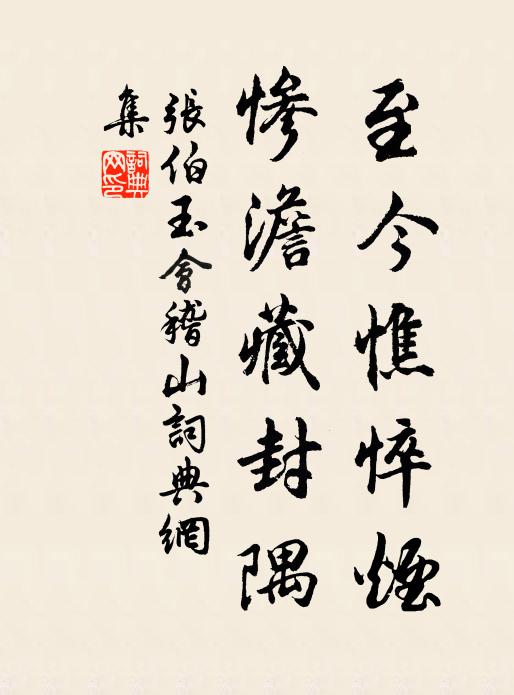 至今憔悴煙
慘澹藏封隅
張伯玉會稽山詞典網
集
詞典網印